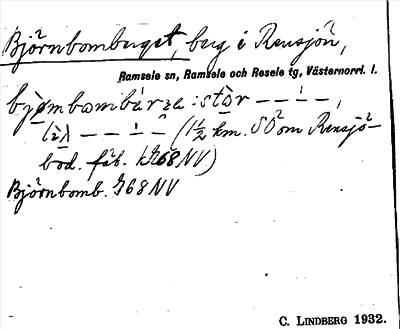 Björnbombuget, bug i Rensjön,
Ramsele sn, Ramsele och Resele tg, Västernorrl. l.
stòr – – – –,
– – – – (1½ km. SO om Rensjö-
bod. fäb. 768 NV)
Björnbomb. 768 NV
C. LINDBERG 1932.